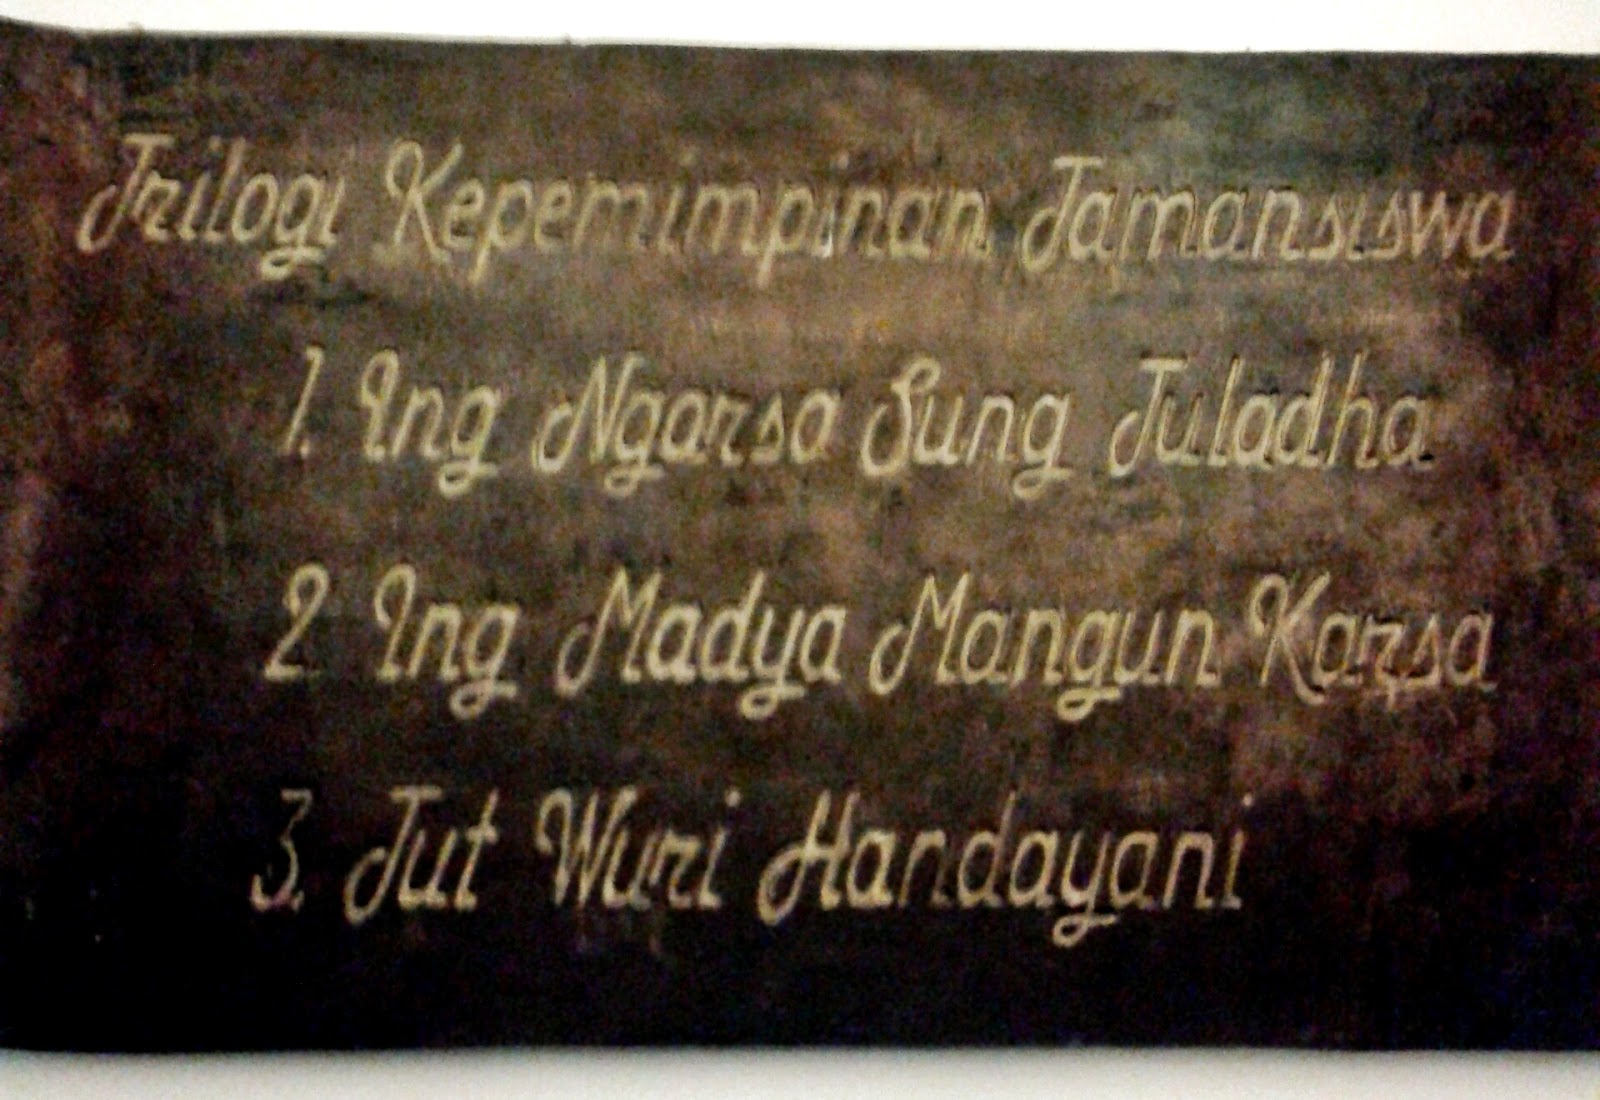 Trilogi Kepemimpinan Tamansiswa
1. Ing Ngarsa Sung Tuladha
2. Ing Madya Mangun Karsa
3. Tut Wuri Handayani